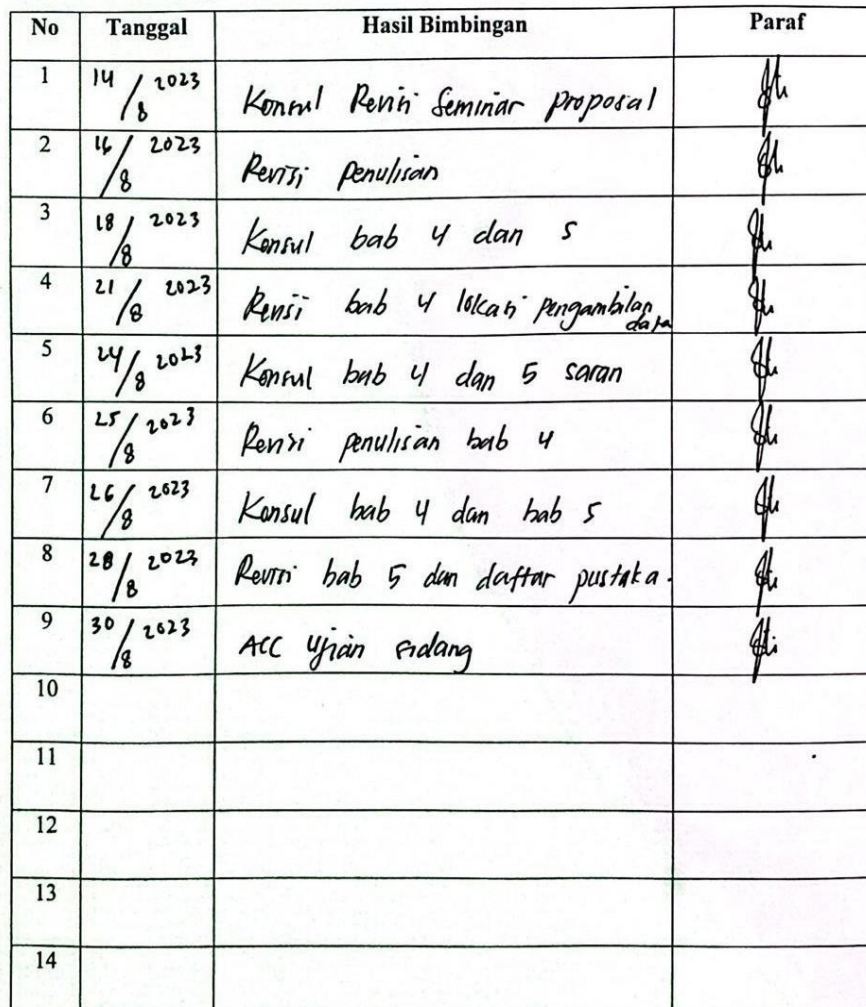 No Tanggal Hasil Bimbingan Paraf
1 14/8 2023 Konsul Revisi Seminar proposal
2 16/8 2023 Revisi penulisan
3 18/8 2023 Konsul bab 4 dan 5
4 21/8 2023 Revisi bab 4 lokasi pengambilan
data
5 24/8 2023 Konsul bab 4 dan 5 saran
6 25/8 2023 Revisi penulisan bab 4
7 26/8 2023 Konsul bab 4 dan bab 5
8 28/8 2023 Revisi bab 5 dan daftar pustaka.
9 30/8 2023 ACC Ujian sidang
10
11
12
13
14